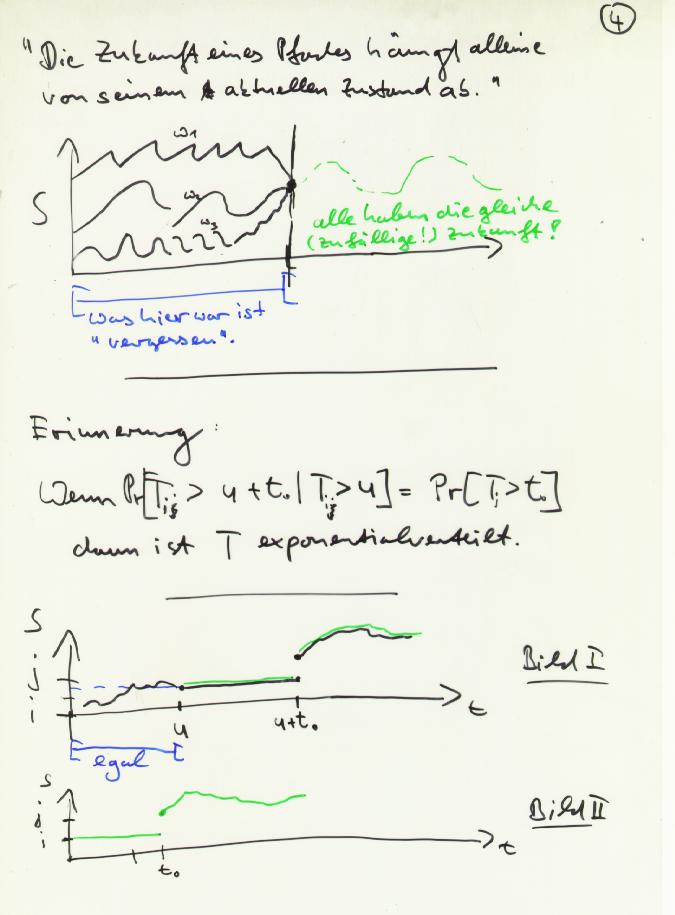 4
"Die Zukunft eines Pfades hängt alleine
von seinem aktuellen Zustand ab."
S
ω1
ω2
ω3
alle haben die gleiche
(zufällige!) Zukunft!
was hier war ist
"vergessen".
Erinnerung:
Wenn Pr[T_ij > u + t₀ | T_ij > u] = Pr[T_i > t₀]
dann ist T exponentialverteilt.
S
j
i
u
u+t₀
t
egal
Bild I
S
j
i
t₀
t
Bild II